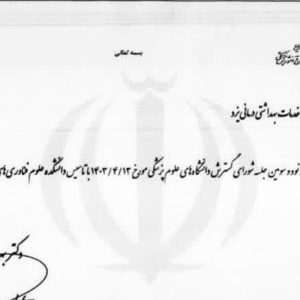 بسمه تعالی
خدمات بهداشتی درمانی یزد
نود و سومین جلسه شورای گسترش دانشگاه‌های علوم پزشکی مورخ ۱۴۰۳/۴/۱۳ با تاسیس دانشکده علوم فناوری‌های
دکتر